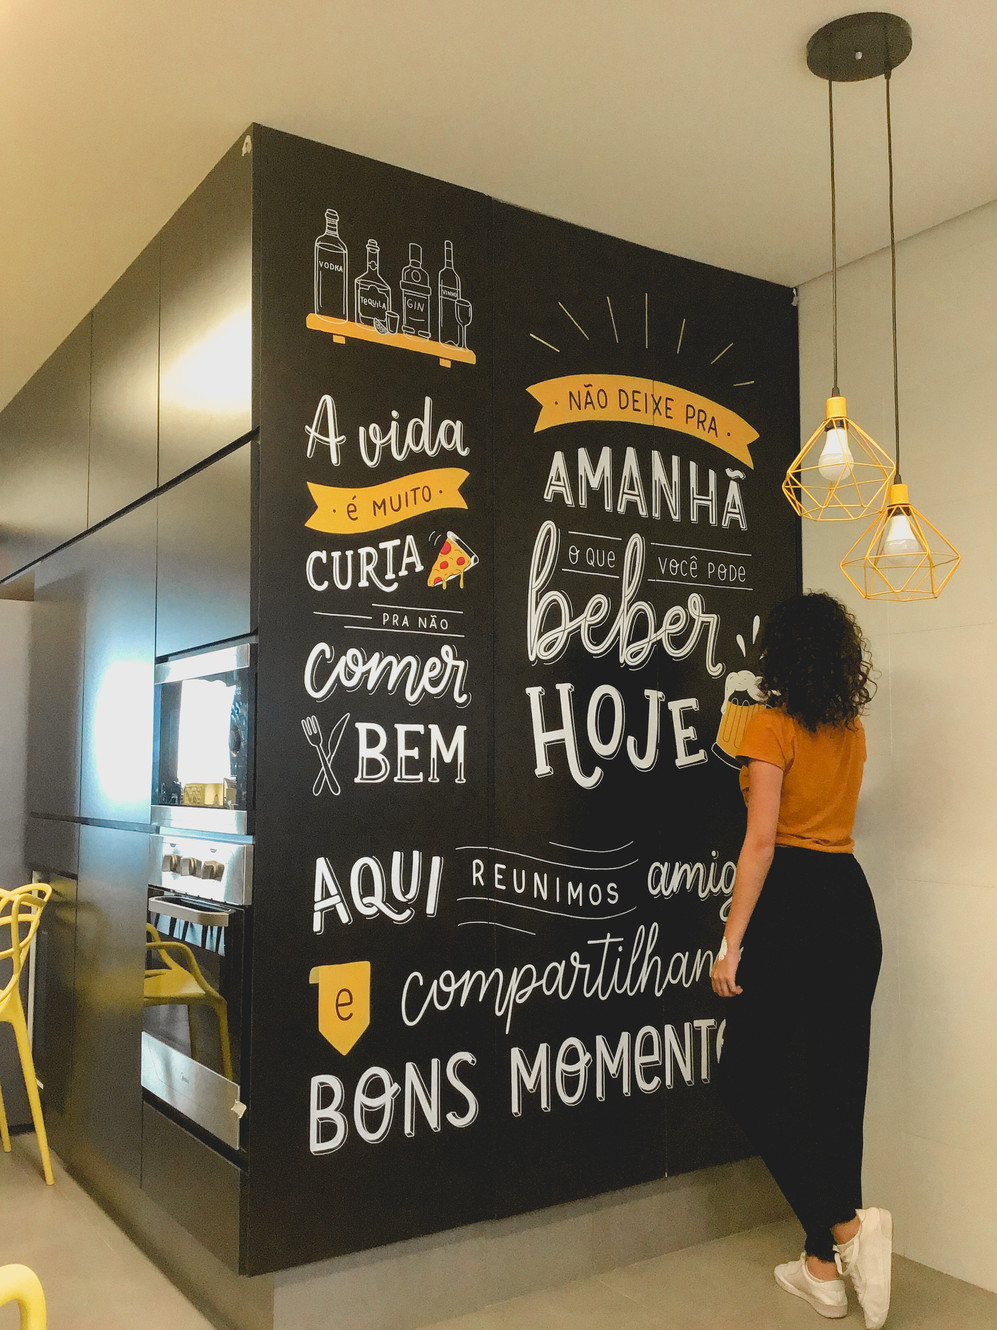 VODKA
TEQUILA
GIN
VINHO
A vida
é MUITO
CURTA
PRA NÃO
comer
BEM
NÃO DEIXE PRA
AMANHÃ
o que VOCÊ PODE
beber
HOJE
AQUI REUNIMOS amig
e compartilham
BONS MOMENTO